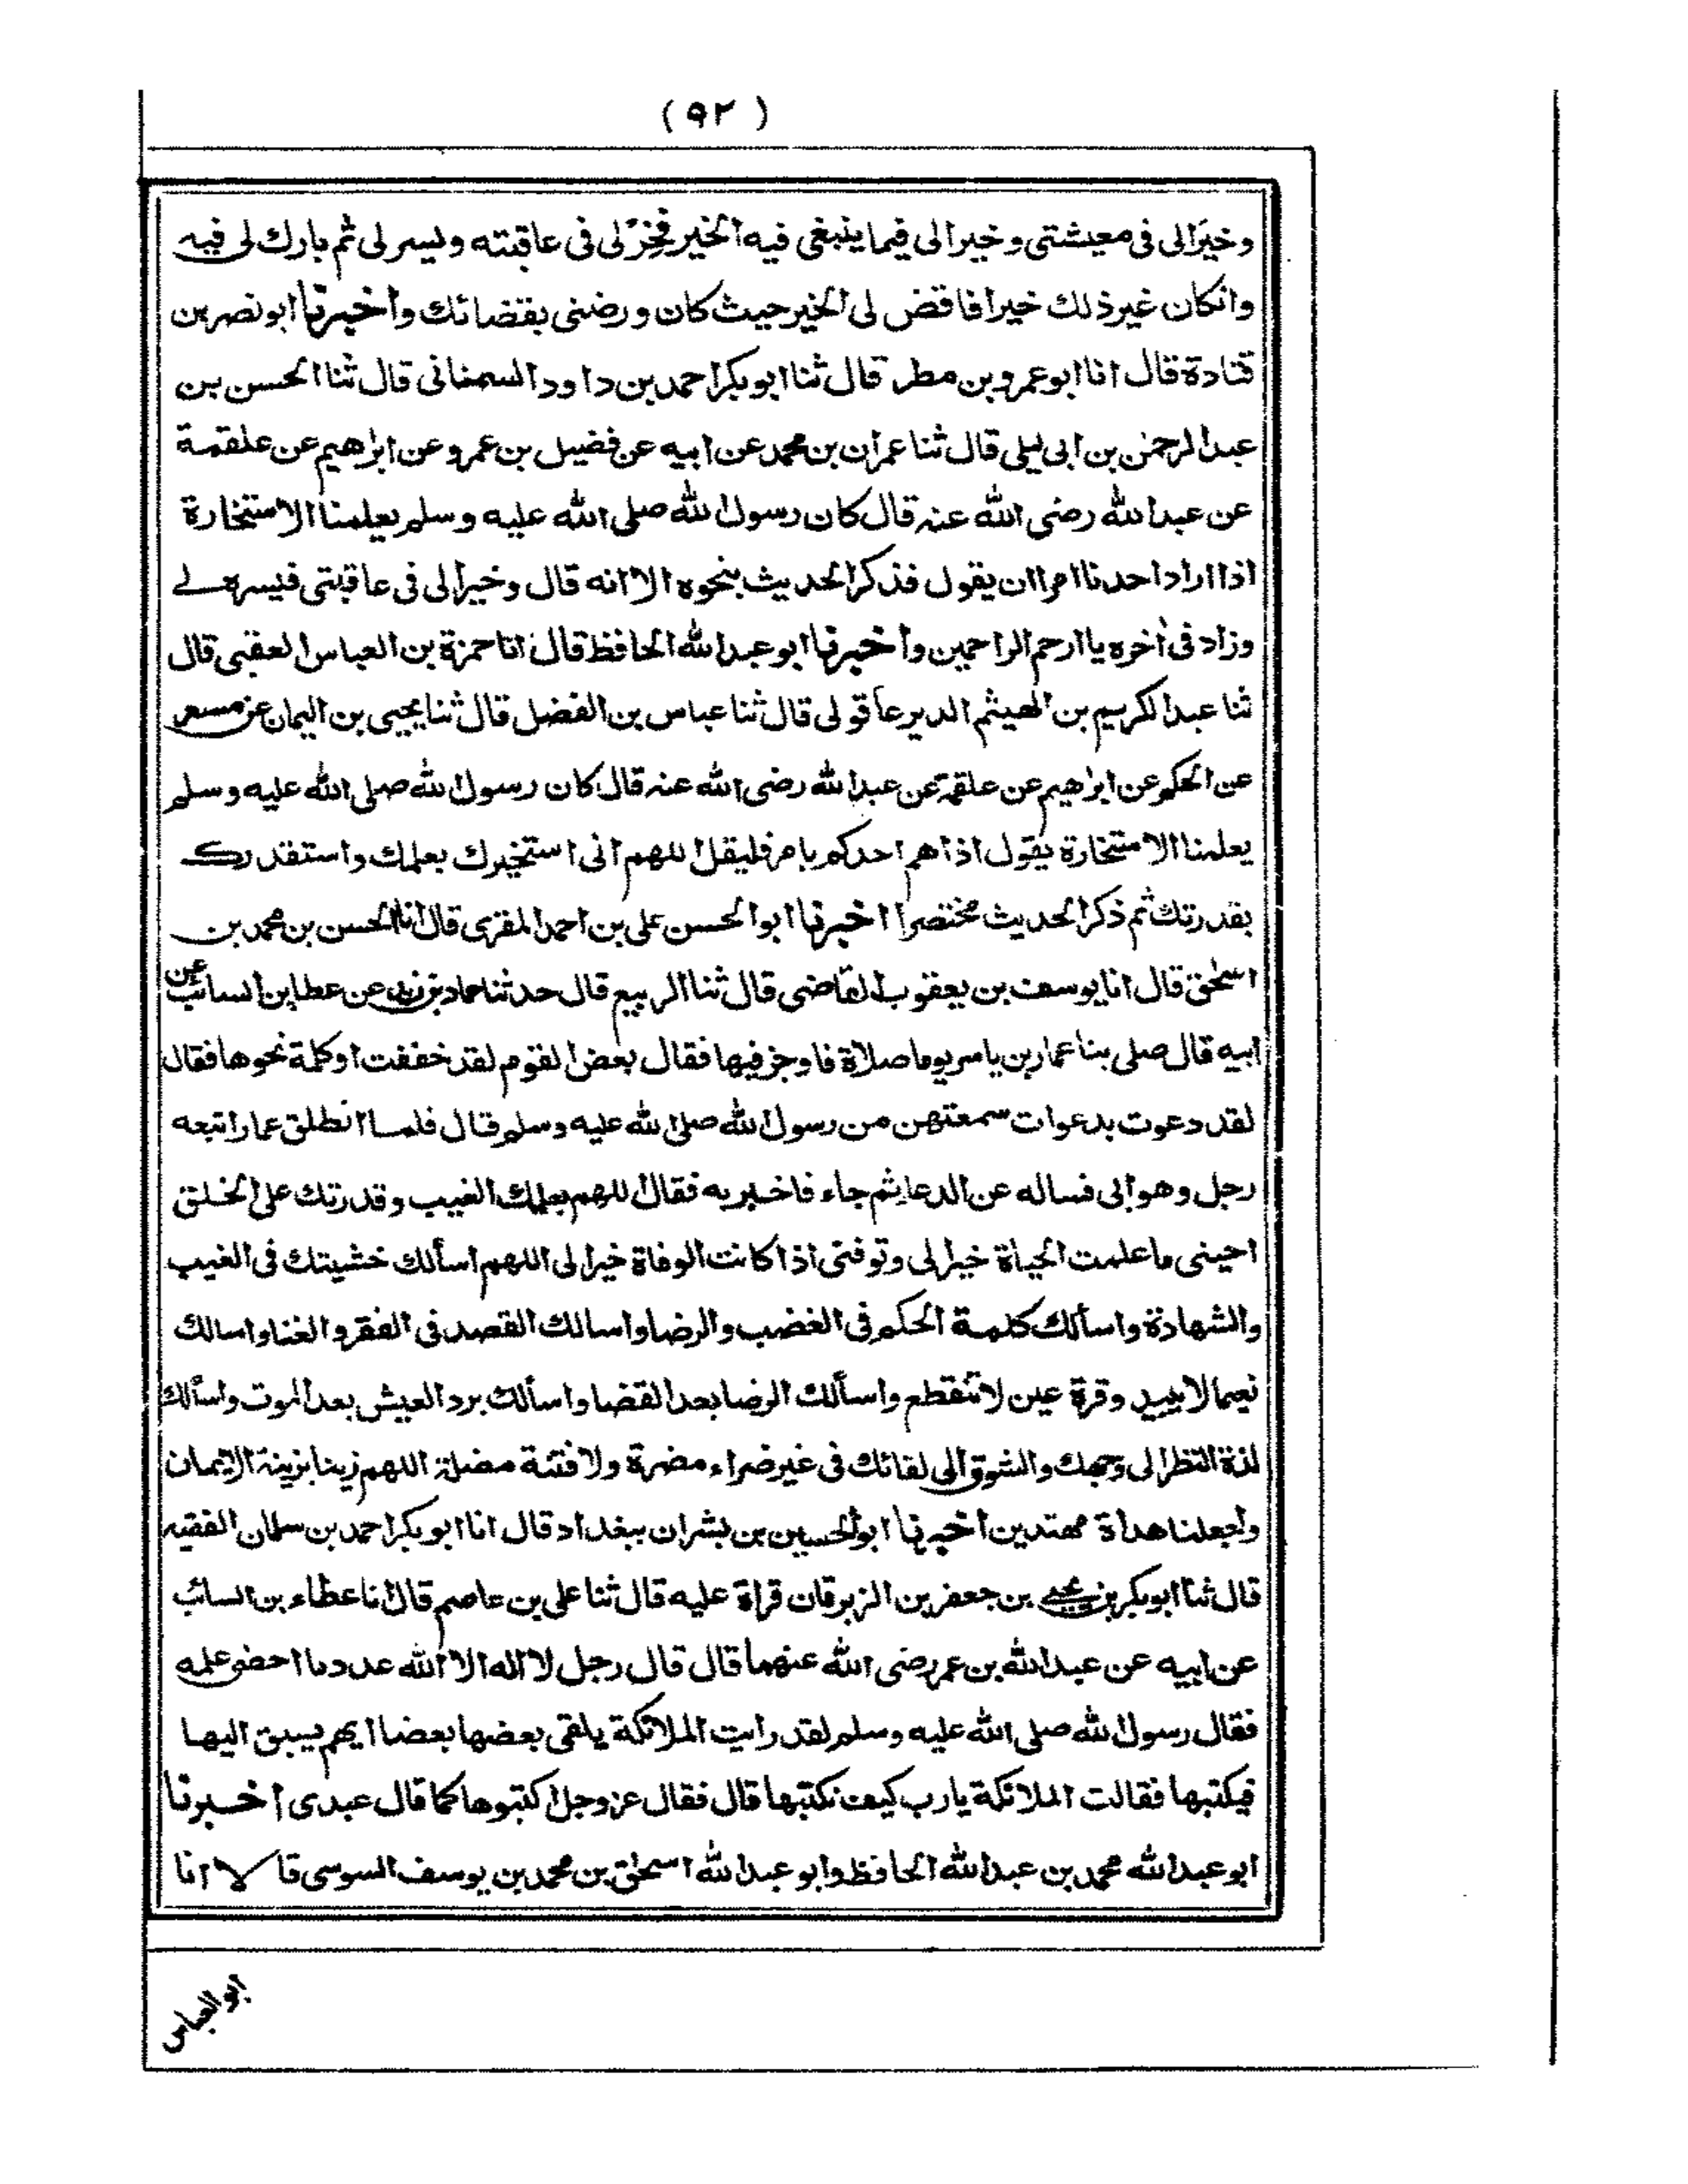 (٩٢)
وخيرا لى فى معيشتى وخيرا لى فيما ينبغى فيه الخير فخِرْ لى فى عاقبته ويسر لى ثم بارك لى فيه
وانكان غير ذلك خيرا فاقض لى الخير حيث كان ورضنى بقضائك وأخبرنا ابو نصر بن
قتادة قال انا ابو عمرو بن مطر قال ثنا ابو بكر احمد بن داود السمنانى قال ثنا الحسن بن
عبد الرحمٰن بن ابى ليلى قال ثنا عمران بن محمد عن ابيه عن فضيل بن عمرو عن ابرٰهيم عن علقمة
عن عبد الله رضى الله عنه قال كان رسول الله صلى الله عليه وسلم يعلمنا الاستخارة
اذا اراد احدنا امرا ان يقول فذكر الحديث بنحوه الا انه قال وخيرا لى فى عاقبتى فيسره لے
وزاد فى أخره يا ارحم الراحمين وأخبرنا ابو عبد الله الحافظ قال انا حمزة بن العباس العقبى قال
ثنا عبد الكريم بن الهيثم الديرعاقولى قال ثنا عباس بن الفضل قال ثنا يحيى بن اليمان عن مسعر
عن الحكم عن ابرٰهيم عن علقمة عن عبد الله رضى الله عنه قال كان رسول الله صلى الله عليه وسلم
يعلمنا الاستخارة يقول اذا هم احدكم بامر فليقل اللهم انى استخيرك بعلمك واستقدرك
بقدرتك ثم ذكر الحديث مختصرا اخبرنا ابو الحسن على بن احمد المقرى قال انا الحسن بن محمد بن
اسحٰق قال انا يوسف بن يعقوب القاضى قال ثنا الربيع قال حدثنا حماد بن زيد عن عطا بن السائب عن
ابيه قال صلى بنا عمار بن ياسر يوما صلاة فاوجز فيها فقال بعض القوم لقد خففت او كلمة نحوها فقال
لقد دعوت بدعوات سمعتهن من رسول الله صلى الله عليه وسلم قال فلما انطلق عمار اتبعه
رجل وهو ابى فساله عن الدعا ثم جاء فاخبر به فقال اللهم بعلمك الغيب وقدرتك على الخلق
احينى ما علمت الحياة خيرا لى وتوفنى اذا كانت الوفاة خيرا لى اللهم اسألك خشيتك فى الغيب
والشهادة واسألك كلمة الحكم فى الغضب والرضا واسالك القصد فى الفقر والغنا واسالك
نعيما لا يبيد وقرة عين لا تنقطع واسألك الرضا بعد القضا واسألك برد العيش بعد الموت واسألك
لذة النظر الى وجهك والشوق الى لقائك فى غير ضراء مضرة ولا فتنة مضلة اللهم زينا بزينة الايمان
واجعلنا هداة مهتدين اخبرنا ابو الحسين بن بشران ببغداد قال انا ابو بكر احمد بن سلمان الفقيه
قال ثنا ابو بكر بن يحيى بن جعفر بن الزبرقان قراة عليه قال ثنا على بن عاصم قال انا عطاء بن السائب
عن ابيه عن عبد الله بن عمر رضى الله عنهما قال قال رجل لا اله الا الله عدد ما احصى علمه
فقال رسول الله صلى الله عليه وسلم لقد رايت الملائكة يلقى بعضها بعضا ايهم يسبق اليها
فيكتبها فقالت الملائكة يا رب كيف نكتبها قال فقال عز وجل اكتبوها كما قال عبدى اخبرنا
ابو عبد الله محمد بن عبد الله الحافظ وابو عبد الله اسحٰق بن محمد بن يوسف السوسى قالا انا
ابو العباس